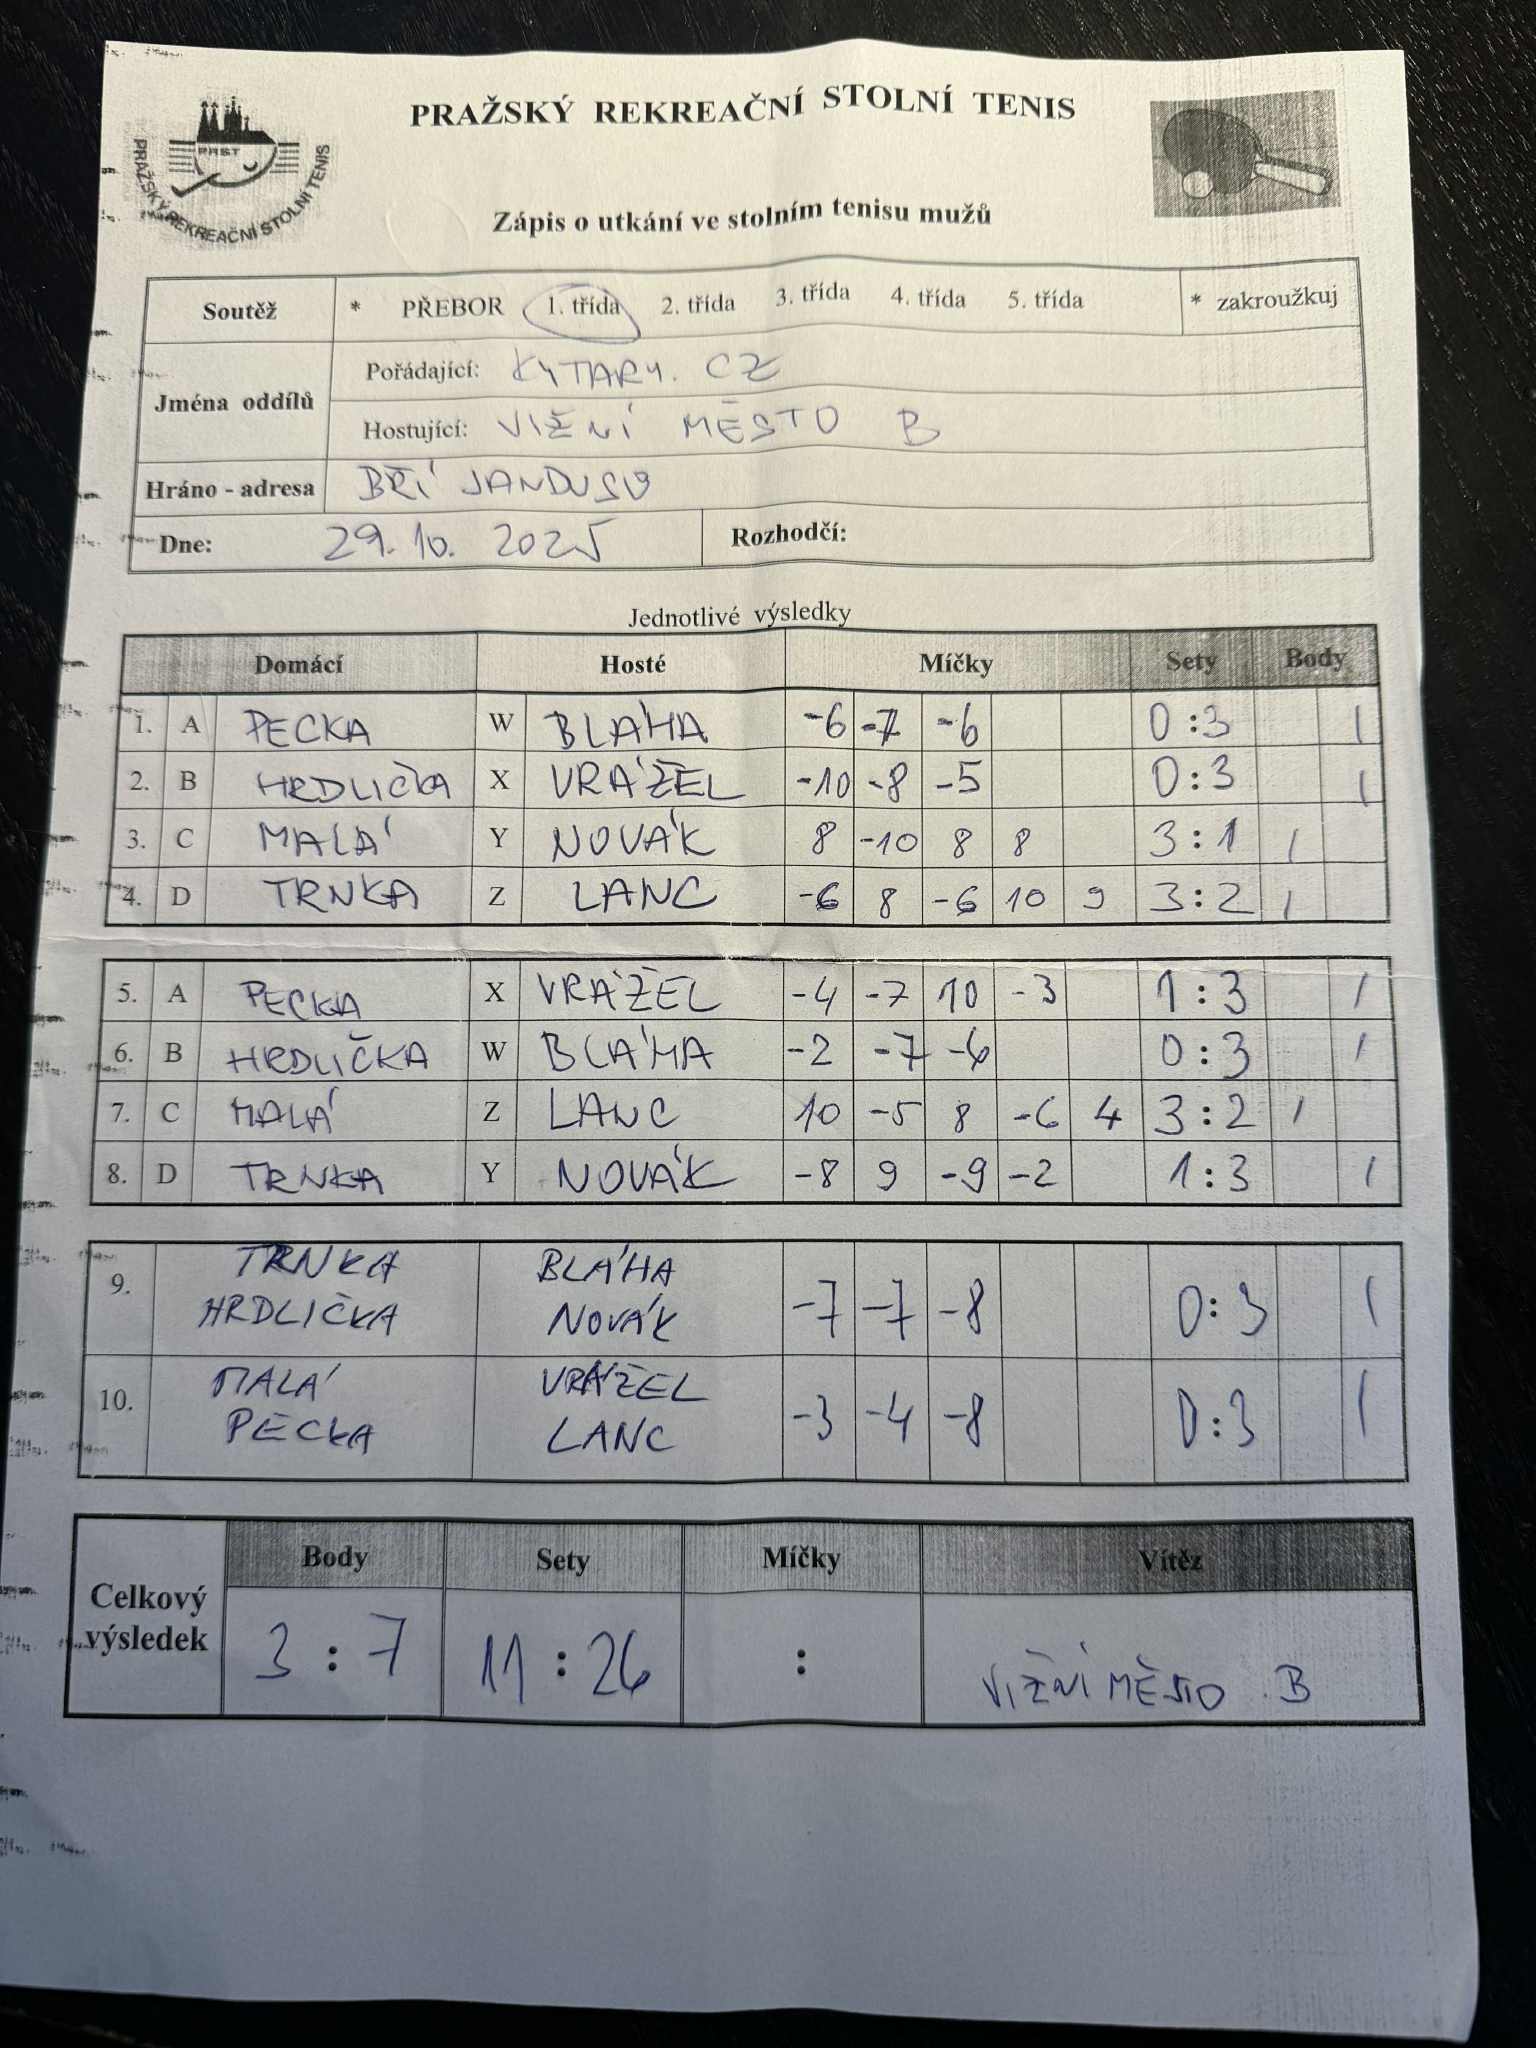 PRAŽSKÝ REKREAČNÍ STOLNÍ TENIS
PRST
PRAŽSKÝ REKREAČNÍ STOLNÍ TENIS
Zápis o utkání ve stolním tenisu mužů
Soutěž * PŘEBOR 1. třída 2. třída 3. třída 4. třída 5. třída * zakroužkuj
Jména oddílů
Pořádající: KYTARY. CZ
Hostující: VIŽNÍ MĚSTO B
Hráno - adresa BŘÍ JANDUSŮ
Dne: 29. 10. 2025 Rozhodčí:
Jednotlivé výsledky
Domácí Hosté Míčky Sety Body
1. A PECKA W BLÁHA -6 -7 -6 0:3 1
2. B HRDLIČKA X VRÁŽEL -10 -8 -5 0:3 1
3. C MALÁ Y NOVÁK 8 -10 8 8 3:1 1
4. D TRNKA Z LANC -6 8 -6 10 9 3:2 1
5. A PECKA X VRÁŽEL -4 -7 10 -3 1:3 1
6. B HRDLIČKA W BLÁHA -2 -7 -6 0:3 1
7. C MALÁ Z LANC 10 -5 8 -6 4 3:2 1
8. D TRNKA Y NOVÁK -8 9 -9 -2 1:3 1
9. TRNKA BLÁHA
HRDLIČKA NOVÁK -7 -7 -8 0:3 1
10. MALÁ VRÁŽEL
PECKA LANC -3 -4 -8 0:3 1
Celkový výsledek
Body Sety Míčky Vítěz
3 : 7 11 : 26 : VIŽNÍ MĚSTO B